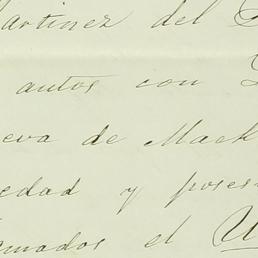 artinez del
autos con
eva de Mack
edad y poses
mados el U